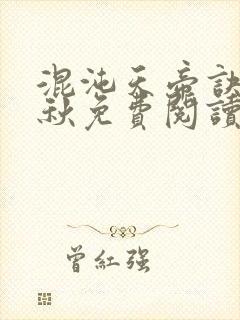 混沌天帝訣
秋免費閱讀
曾紅強